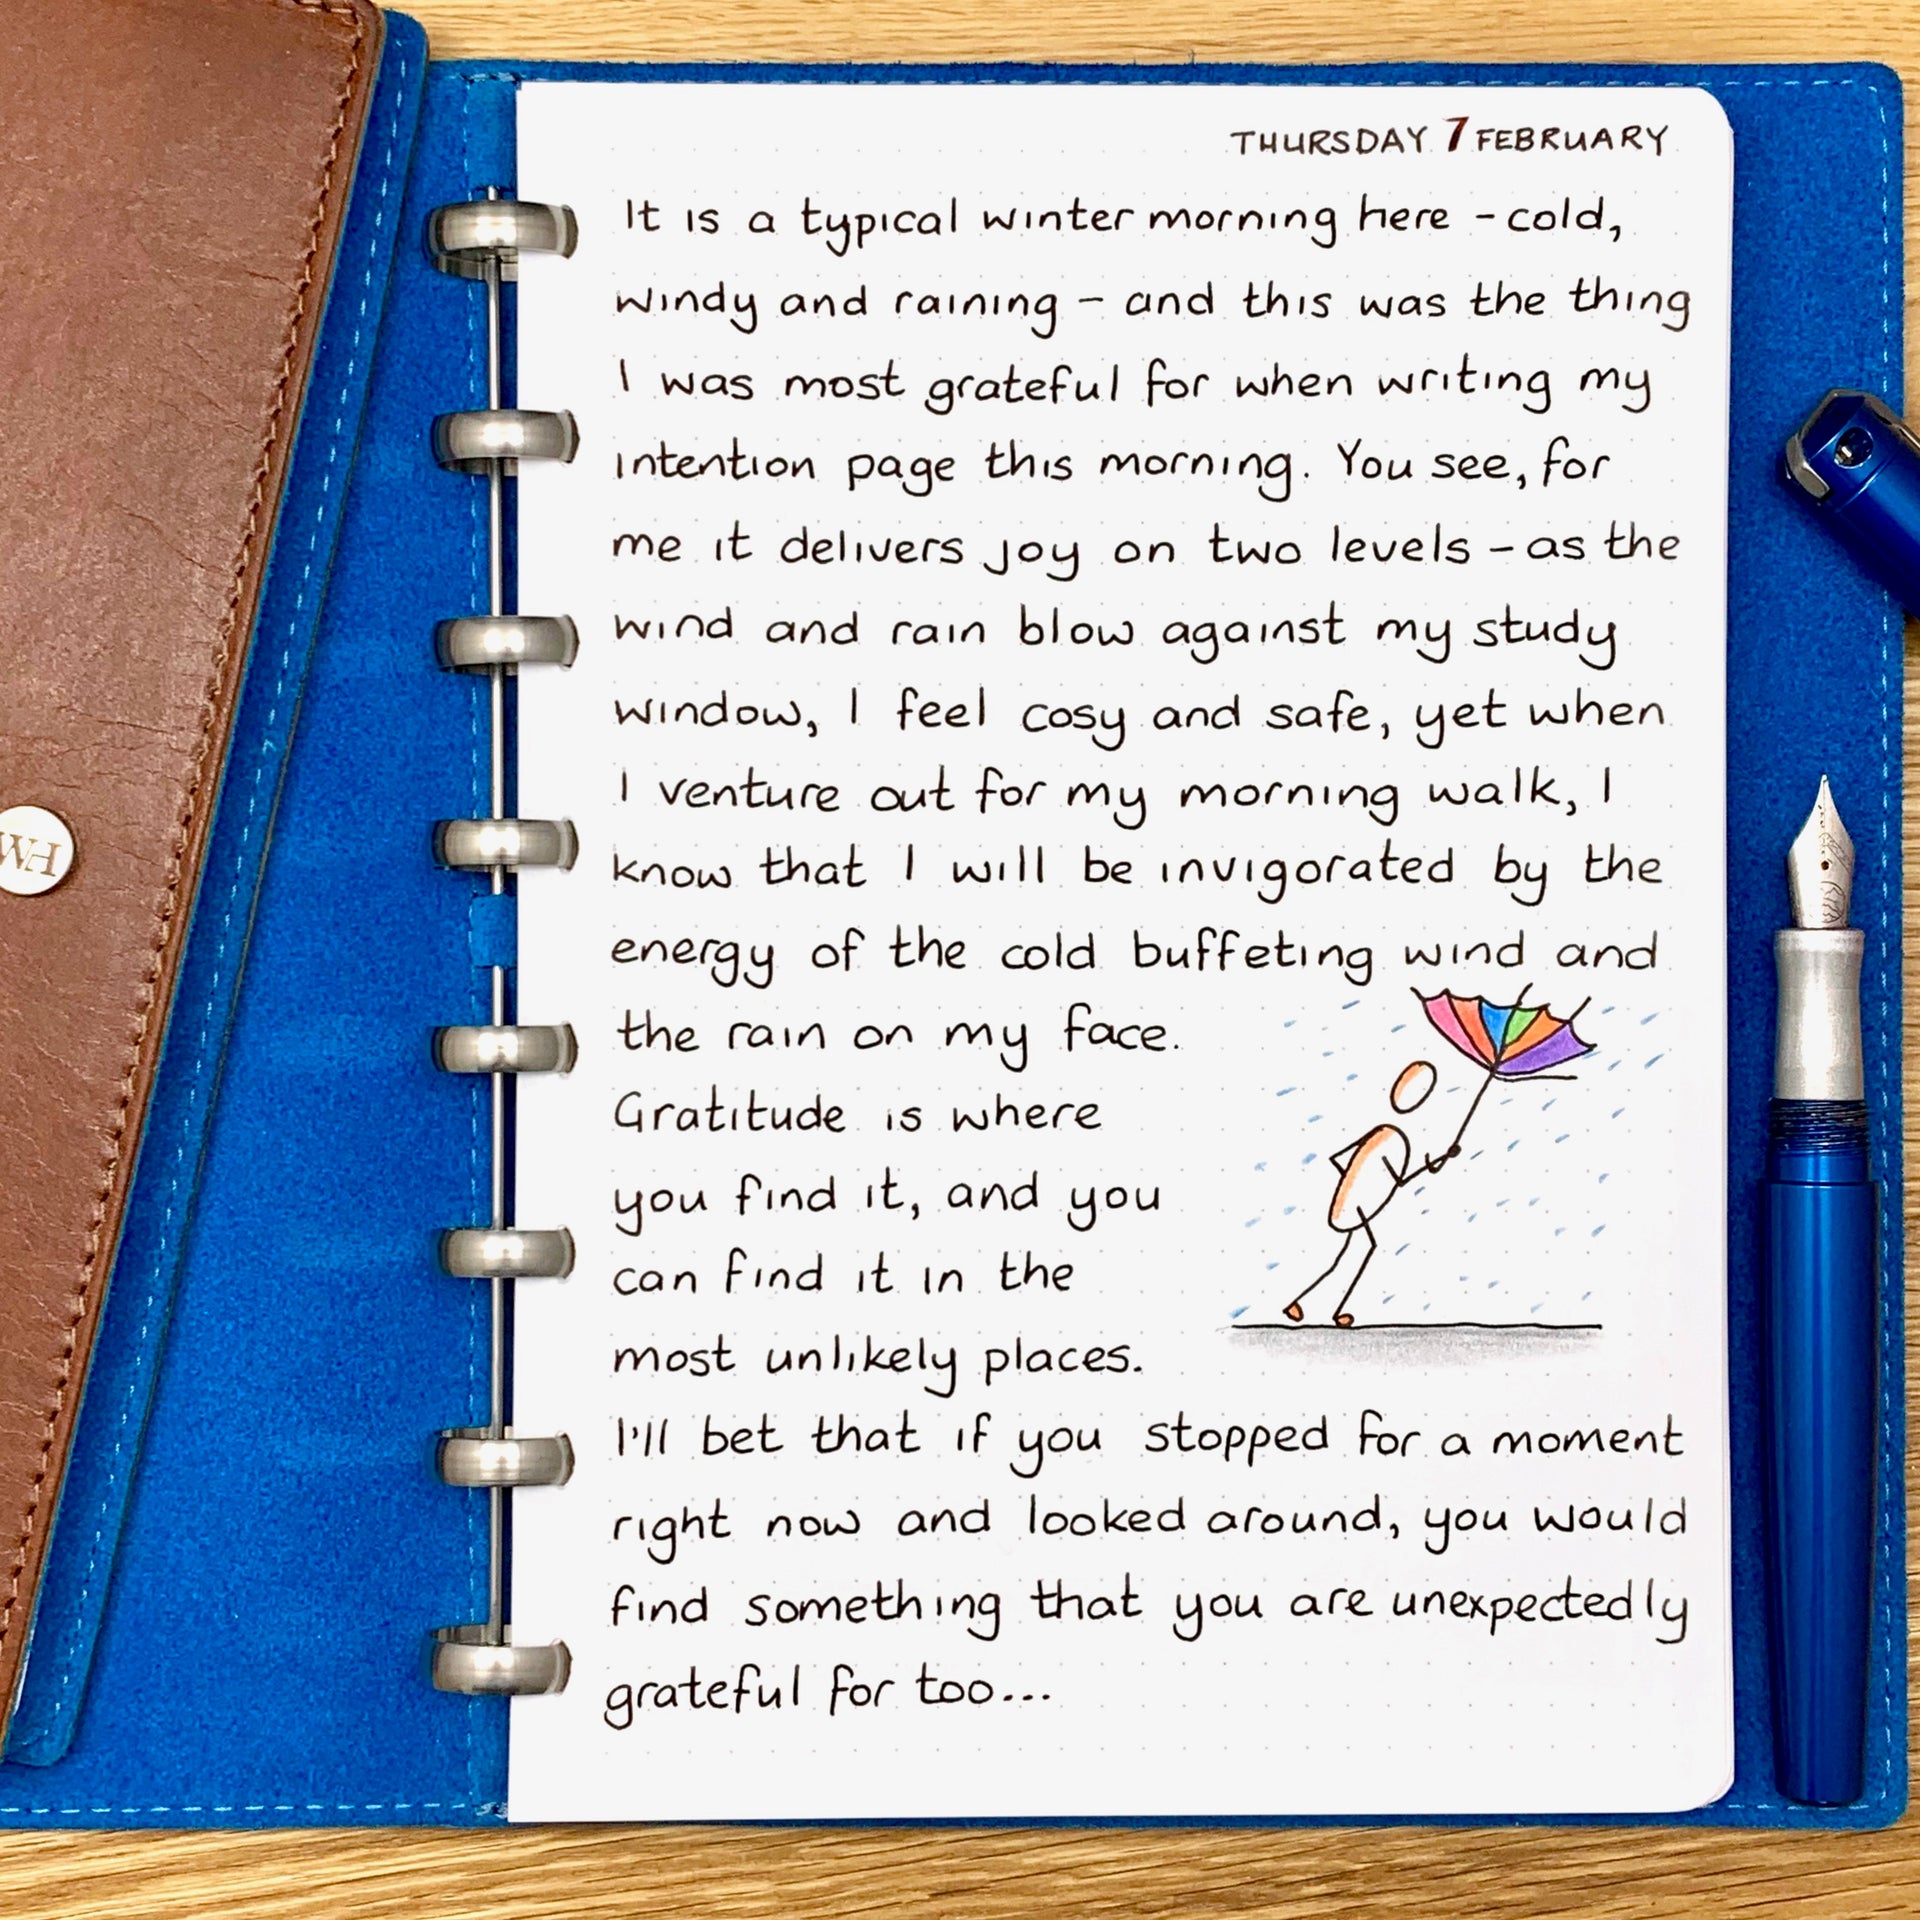 THURSDAY 7 FEBRUARY
It is a typical winter morning here - cold,
windy and raining - and this was the thing
I was most grateful for when writing my
intention page this morning. You see, for
me it delivers joy on two levels - as the
wind and rain blow against my study
window, I feel cosy and safe, yet when
I venture out for my morning walk, I
know that I will be invigorated by the
energy of the cold buffeting wind and
the rain on my face.
Gratitude is where
you find it, and you
can find it in the
most unlikely places.
I'll bet that if you stopped for a moment
right now and looked around, you would
find something that you are unexpectedly
grateful for too...